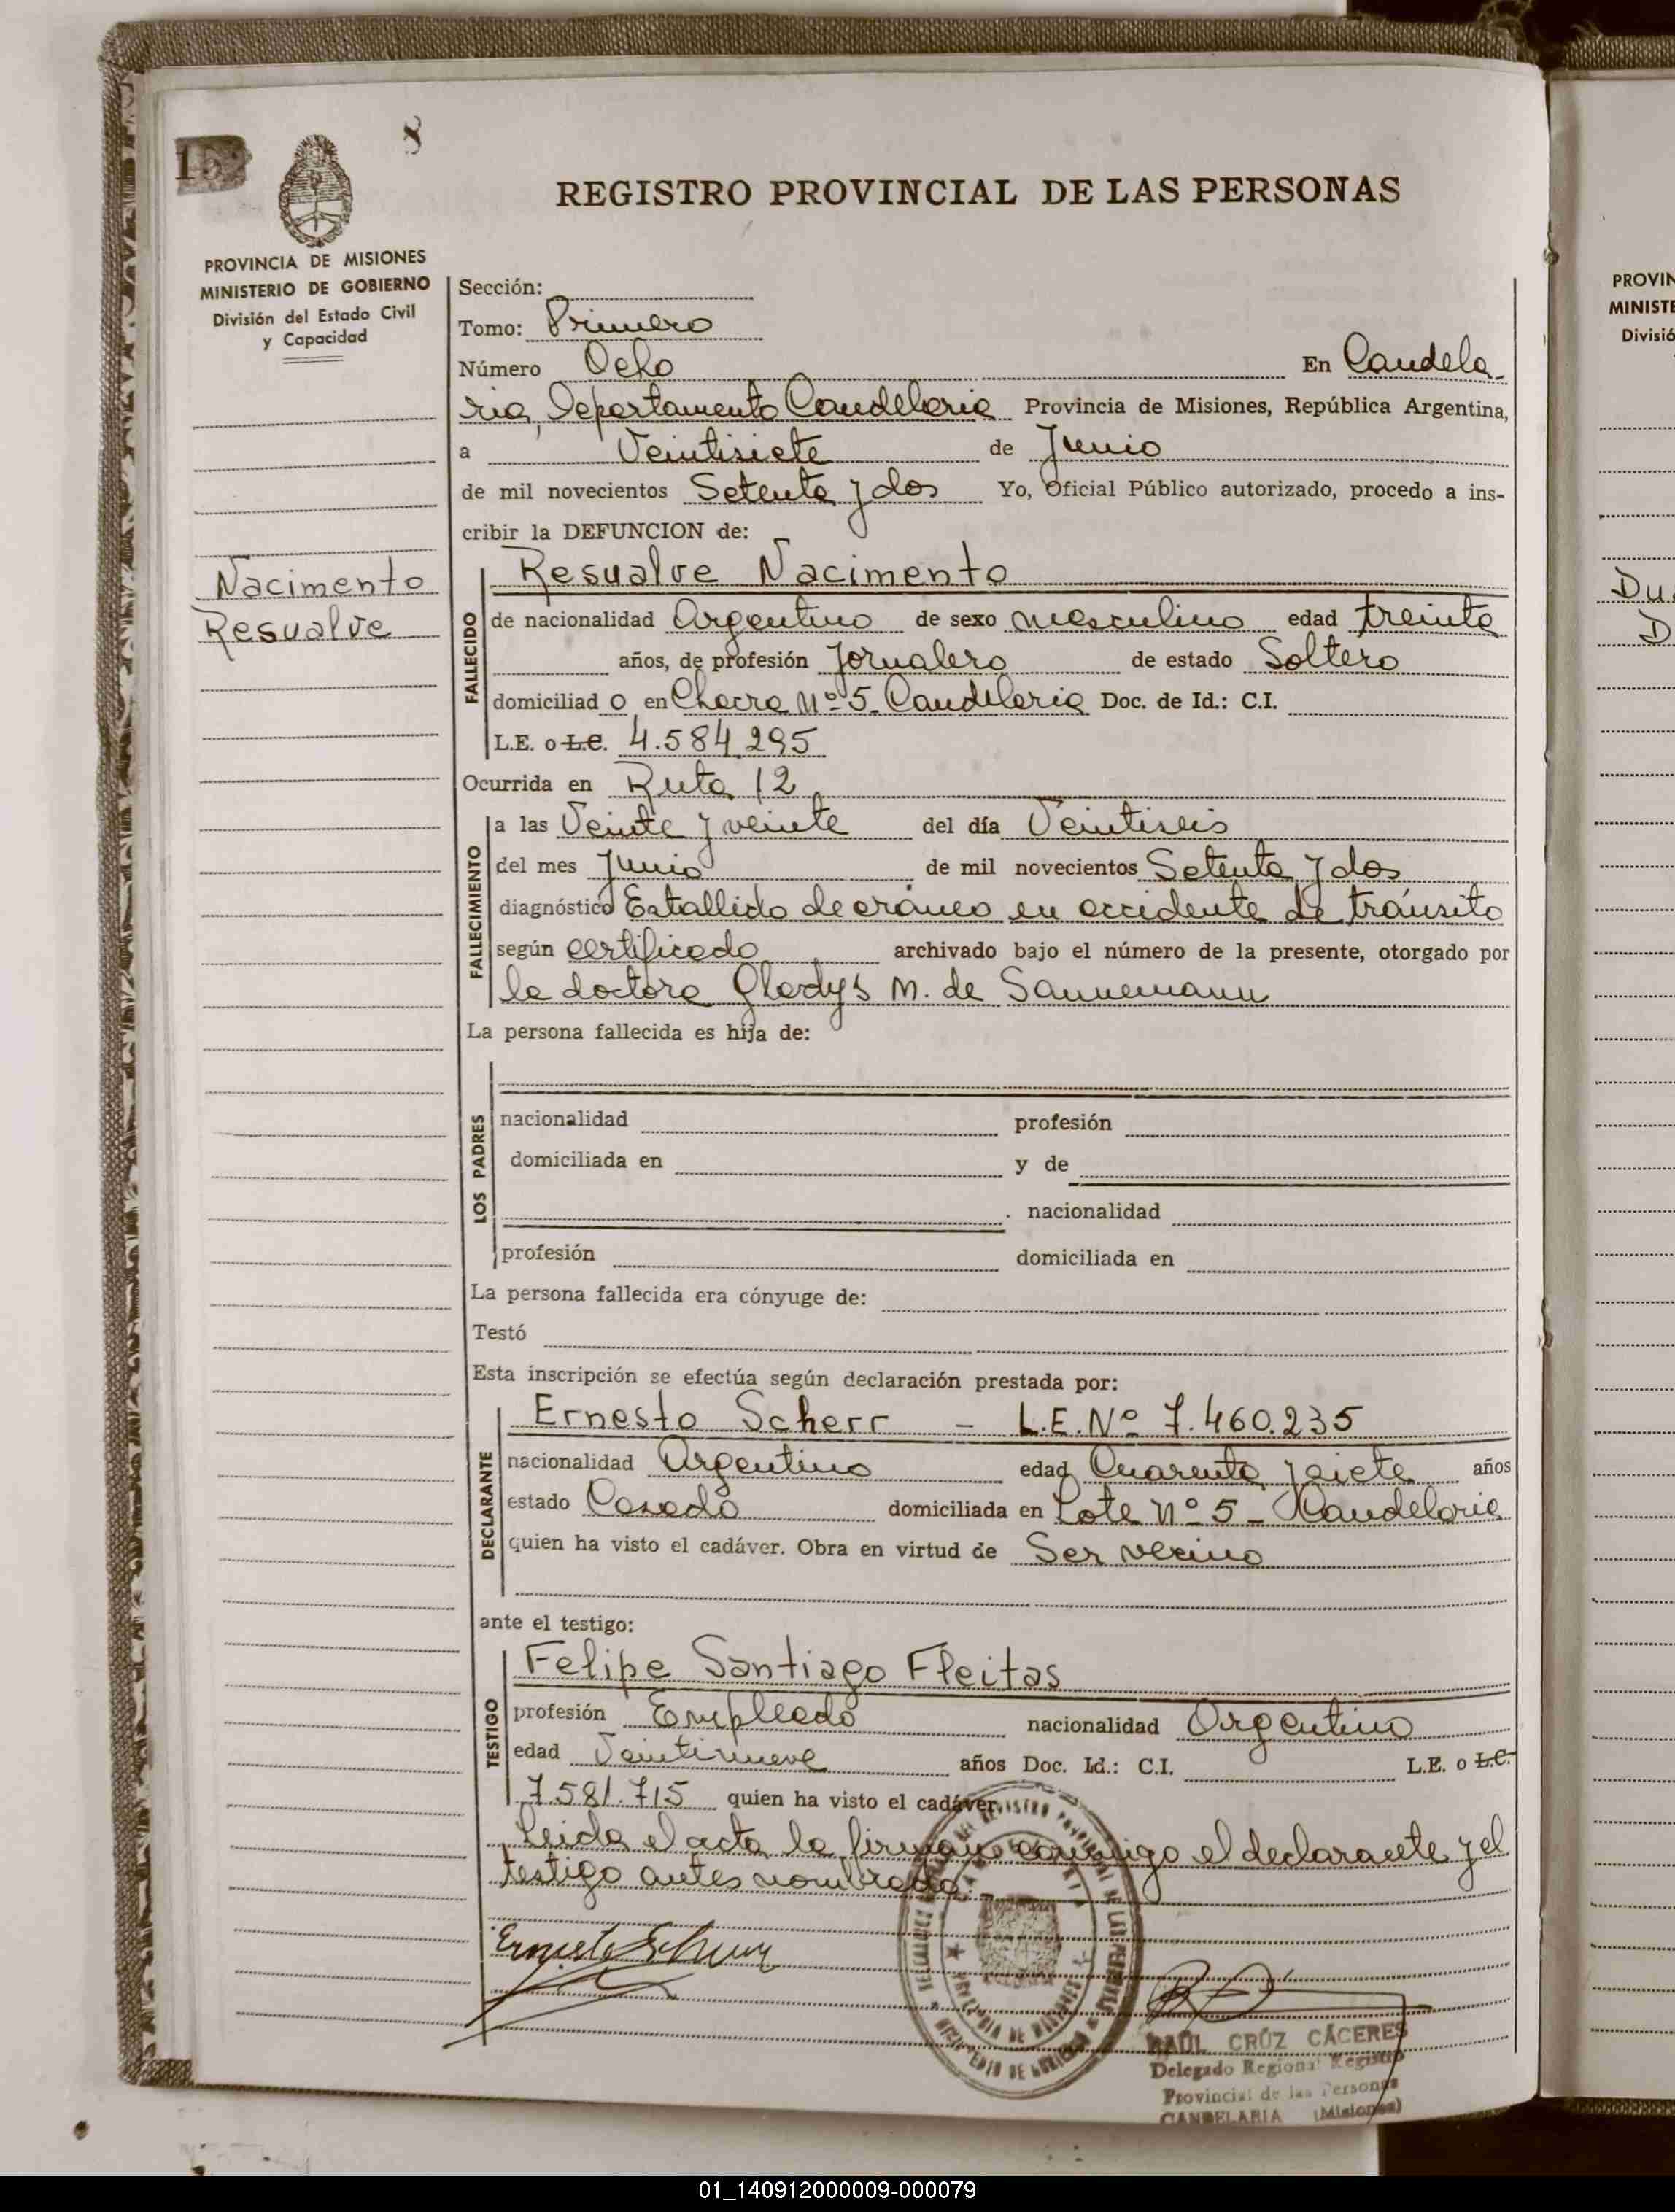 8
REGISTRO PROVINCIAL DE LAS PERSONAS
PROVINCIA DE MISIONES
MINISTERIO DE GOBIERNO
División del Estado Civil
y Capacidad
Nacimento
Resualve
Sección:
Tomo: Primero
Número Ocho En Candela-
ria, Departamento Candelaria Provincia de Misiones, República Argentina,
a Veintisiete de Junio
de mil novecientos Setenta y dos Yo, Oficial Público autorizado, procedo a ins-
cribir la DEFUNCION de:
FALLECIDO
Resualve Nacimento
de nacionalidad Argentino de sexo masculino edad treinta
años, de profesión Jornalero de estado Soltero
domiciliad o en Chacra Nº 5 Candelaria Doc. de Id.: C.I.
L.E. o L.C. 4.584.295
Ocurrida en Ruta 12
FALLECIMIENTO
a las Veinte y veinte del día Veintiseis
del mes Junio de mil novecientos Setenta y dos
diagnóstico Estallido de cráneo en accidente de tránsito
según certificado archivado bajo el número de la presente, otorgado por
la doctora Gladys M. de Sannemann
La persona fallecida es hija de:
LOS PADRES
nacionalidad profesión
domiciliada en y de
nacionalidad
profesión domiciliada en
La persona fallecida era cónyuge de:
Testó
Esta inscripción se efectúa según declaración prestada por:
DECLARANTE
Ernesto Scherr - L.E. Nº 7.460.235
nacionalidad Argentino edad Cuarenta y siete años
estado Casado domiciliada en Lote Nº 5 - Candelaria
quien ha visto el cadáver. Obra en virtud de Ser vecino
ante el testigo:
TESTIGO
Felipe Santiago Fleitas
profesión Empleado nacionalidad Argentino
edad Veintinueve años Doc. Id.: C.I. L.E. o L.C.
7.581.715 quien ha visto el cadáver.
Leida el acta la firman conmigo el declarante y el
testigo antes nombrado.-
Ernesto Scherr
RAÚL CRÚZ CÁCERES
Delegado Regional Registro
Provincial de las Personas
CANDELARIA (Misiones)
PROVIN
MINISTE
Divisió
Du
D
01_140912000009-000079